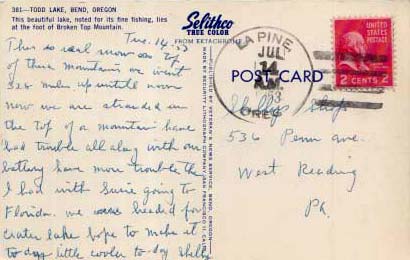 381—TODD LAKE, BEND, OREGON
This beautiful lake, noted for its fine fishing, lies
at the foot of Broken Top Mountain.
Selithco
TRUE COLOR
FROM EKTACHROME
Tue. 14-53
This is real snow on top
of these Mountains we went
320 miles up until noon
now we are stranded on
the top of a mountain have
had trouble all along with our
battery have more trouble than
I had with Susie going to
Florida. we were headed for
crater lake hope to make it
to-day little cooler to-day Shelly
LAPINE,
JUL
14
A.M.
OREG.
UNITED STATES
POSTAGE
2 CENTS 2
POST CARD
Shellys Shop
536 Penn ave.
West Reading
Pa.